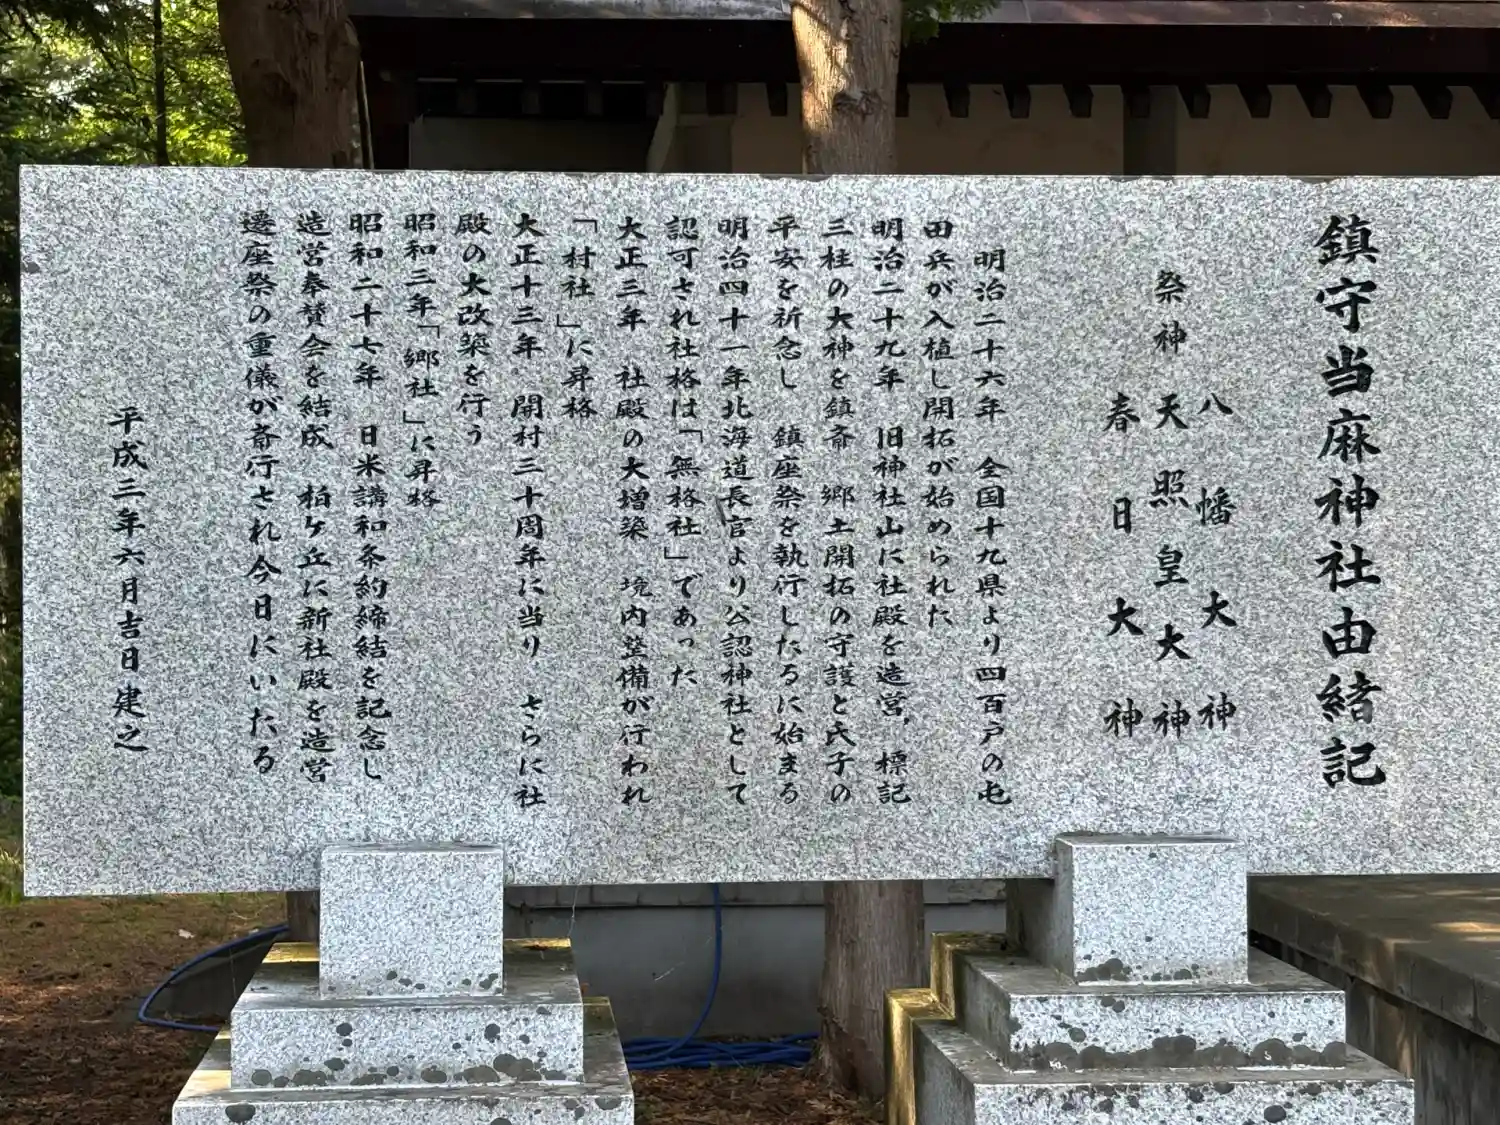 鎮守当麻神社由緒記
八幡大神
祭神 天照皇大神
春日大神
明治二十六年 全国十九県より四百戸の屯
田兵が入植し開拓が始められた
明治二十九年 旧神社山に社殿を造営, 標記
三柱の大神を鎮斎 郷土開拓の守護と氏子の
平安を祈念し 鎮座祭を執行したるに始まる
明治四十一年北海道長官より公認神社として
認可され社格は「無格社」であった
大正三年 社殿の大増築 境内整備が行われ
「村社」に昇格
大正十三年 開村三十周年に当り さらに社
殿の大改築を行う
昭和三年「郷社」に昇格
昭和二十七年 日米講和条約締結を記念し
造営奉賛会を結成 柏ヶ丘に新社殿を造営
遷座祭の重儀が斎行され今日にいたる
平成三年六月吉日建之